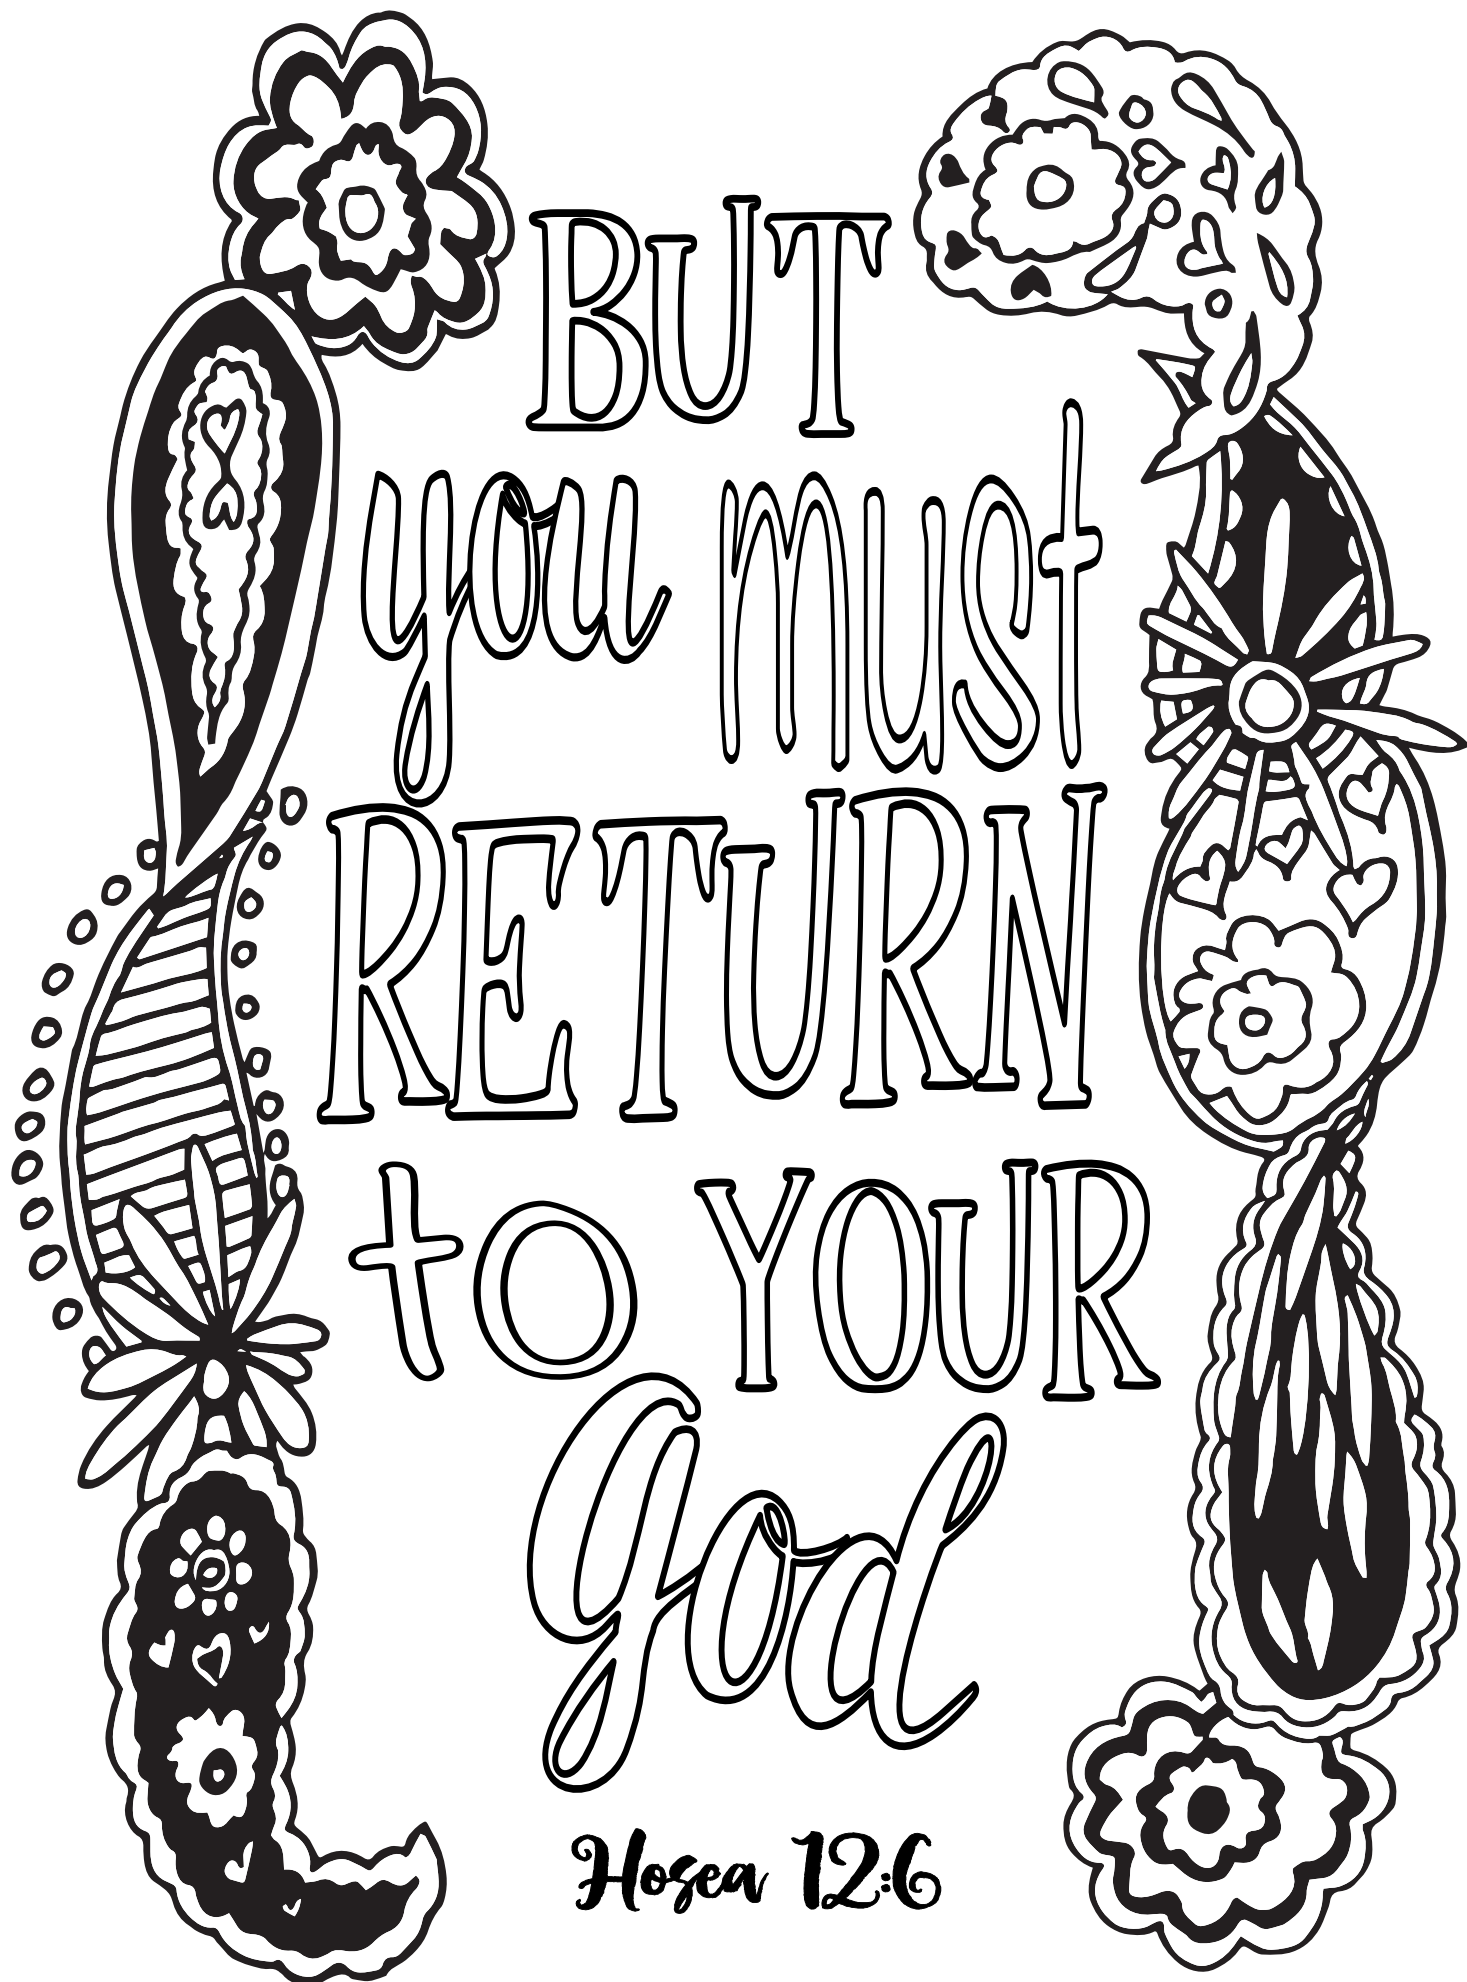 BUT
you must
RETURN
to YOUR
God
Hosea 12:6